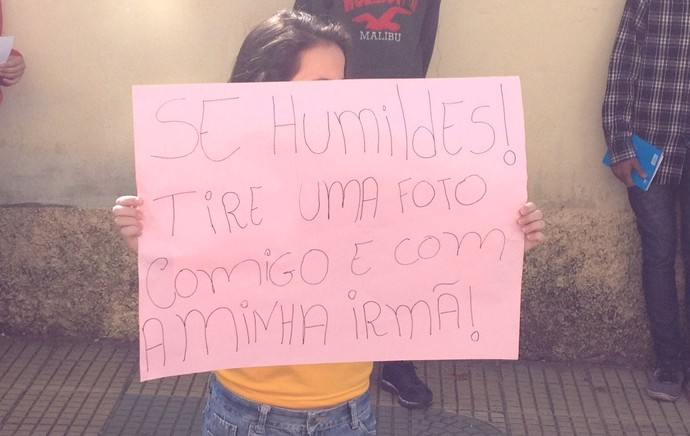 MALIBU
SE HumildES!
TiRE UMA FOTO
COMIGO E COM
A MINHA iRMÃ!